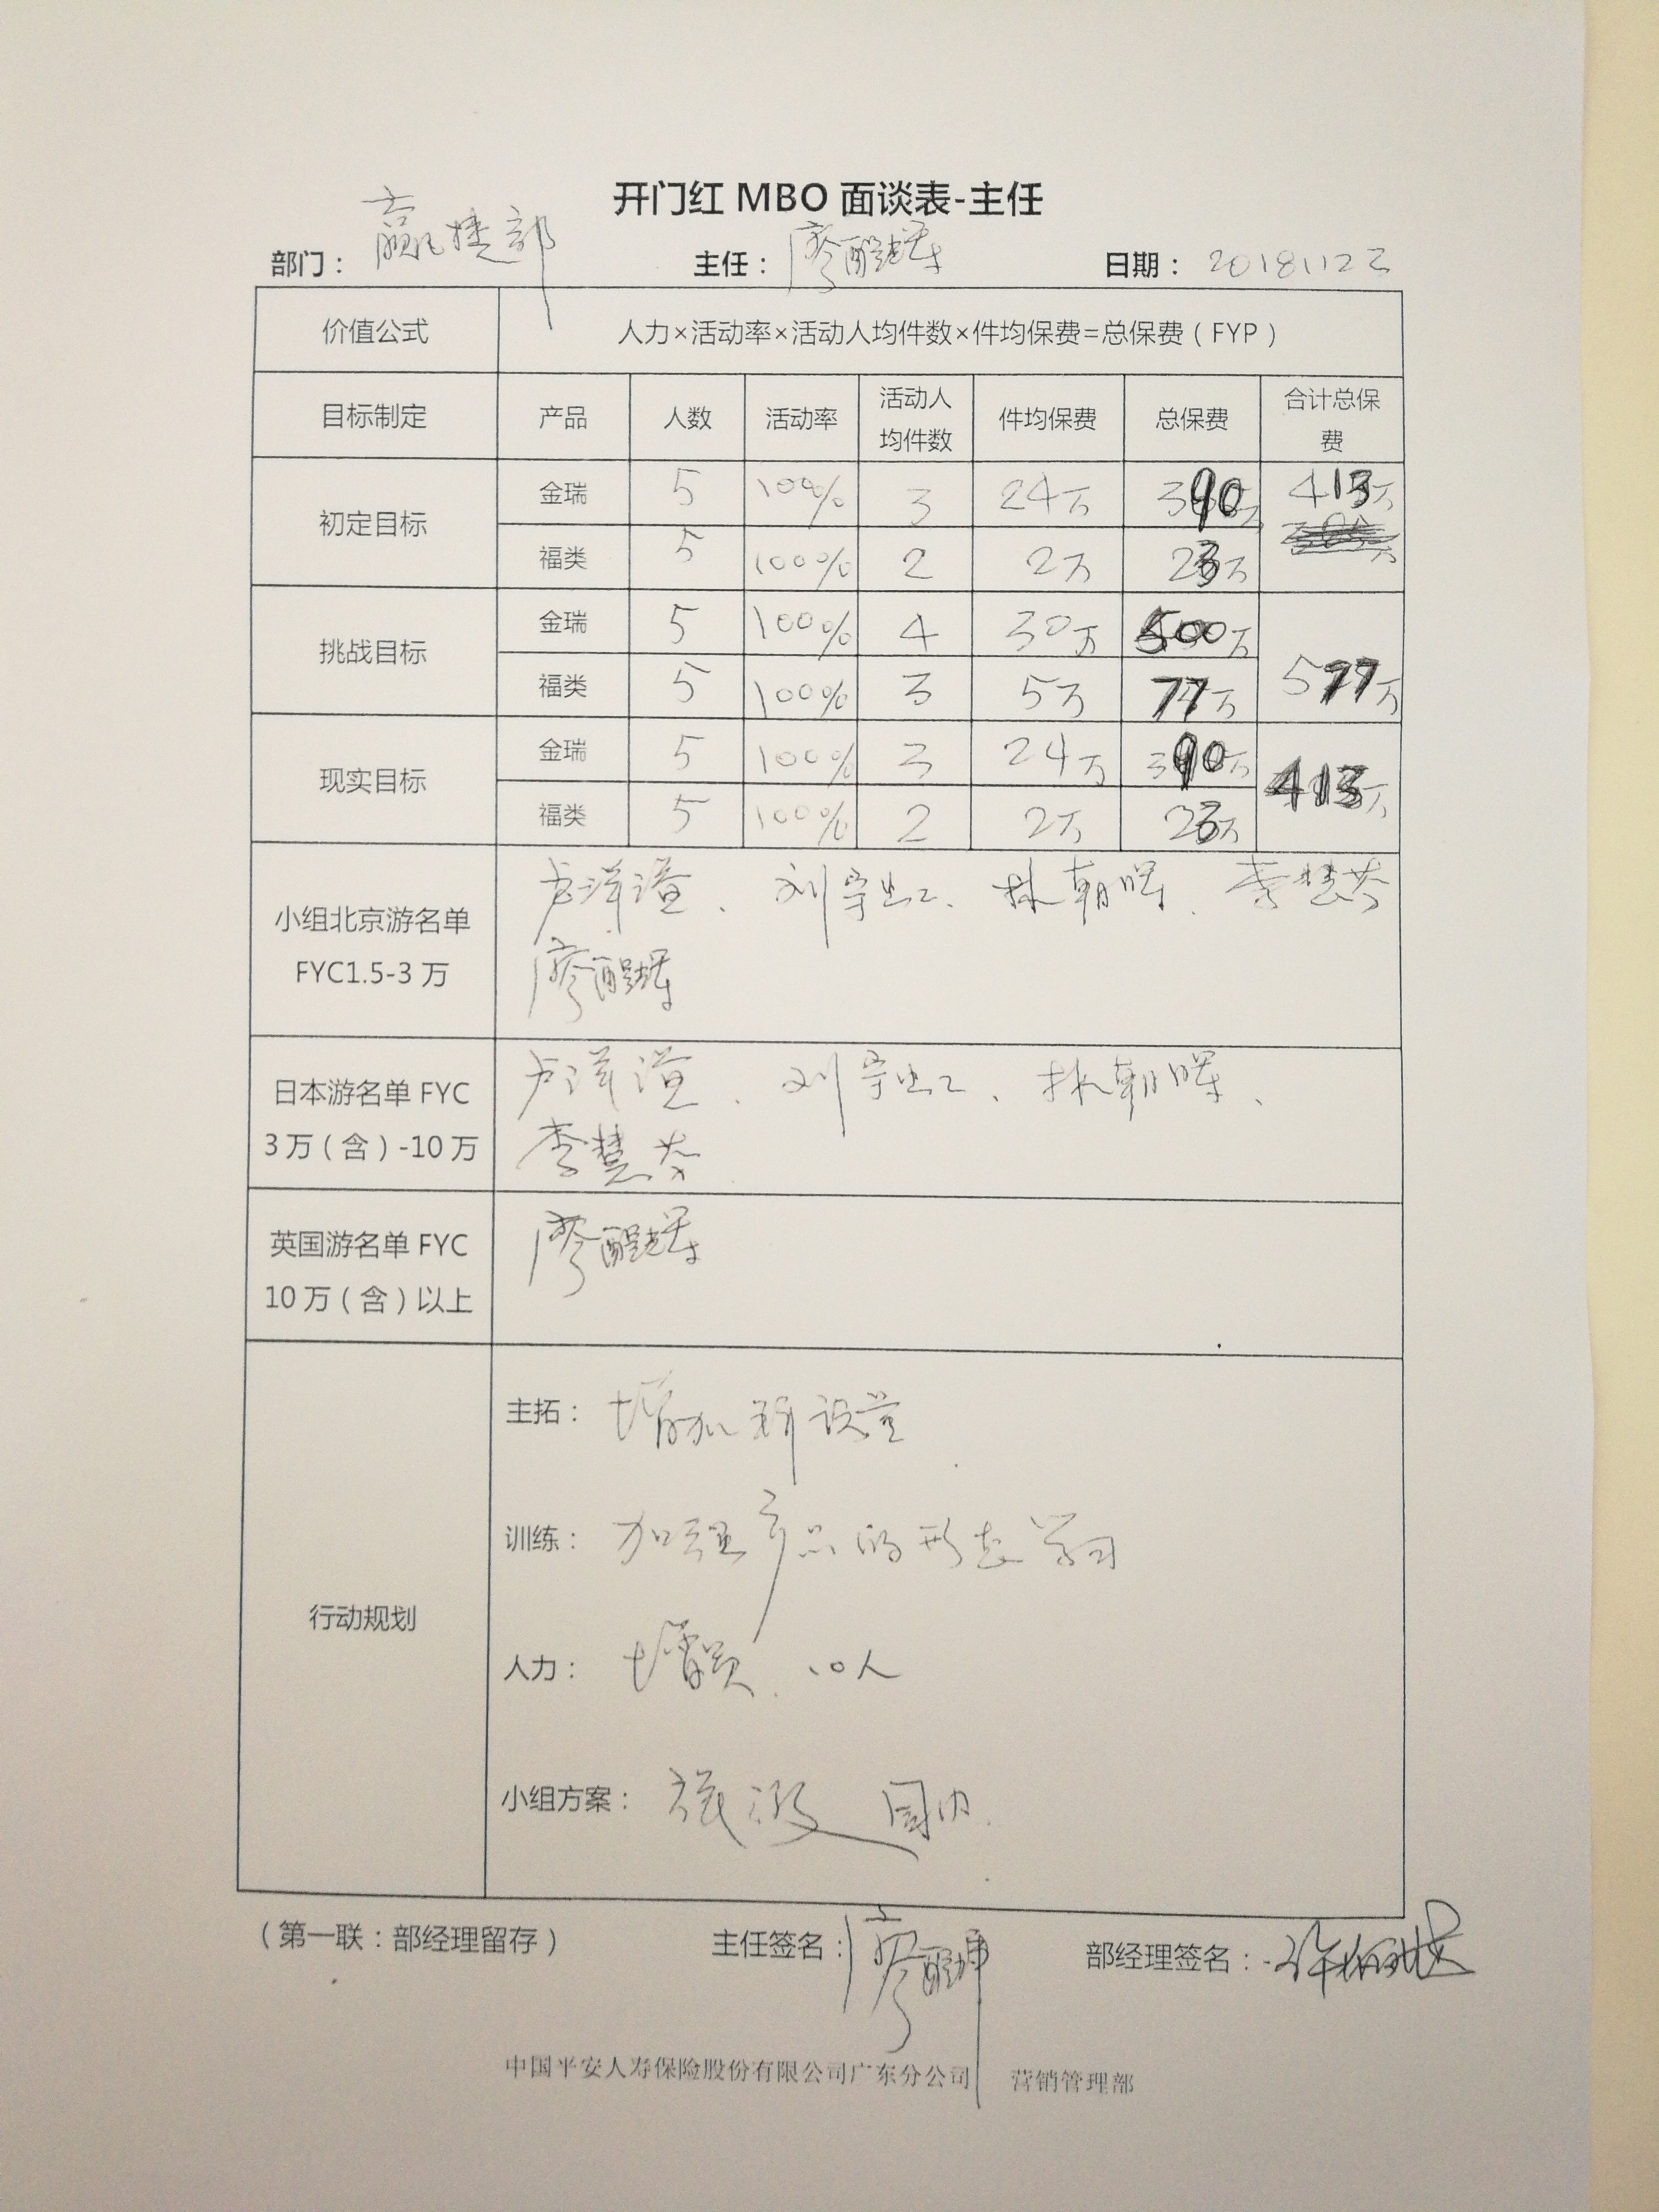 开门红 MBO 面谈表-主任
部门： 赢楚部 主任： 廖 日期： 20181123
价值公式 人力×活动率×活动人均件数×件均保费=总保费（FYP）
目标制定 产品 人数 活动率 活动人均件数 件均保费 总保费 合计总保费
初定目标 金瑞 5 100% 3 24万 390万 413万
福类 5 100% 2 2万 23万
挑战目标 金瑞 5 100% 4 30万 500万 577万
福类 5 100% 3 5万 77万
现实目标 金瑞 5 100% 3 24万 390万 413万
福类 5 100% 2 2万 23万
小组北京游名单
FYC1.5-3 万
卢洋溢、刘宇虹、林朝晖、李慧芬
廖
日本游名单 FYC
3 万（含）-10 万
卢洋溢、刘宇虹、林朝晖、
李慧芬
英国游名单 FYC
10 万（含）以上
廖
行动规划
主拓： 增加新设堂
训练： 加强产品的形态学习
人力： 增员、10人
小组方案： 旅游 国内.
（第一联：部经理留存） 主任签名： 廖 部经理签名： 许
中国平安人寿保险股份有限公司广东分公司 营销管理部